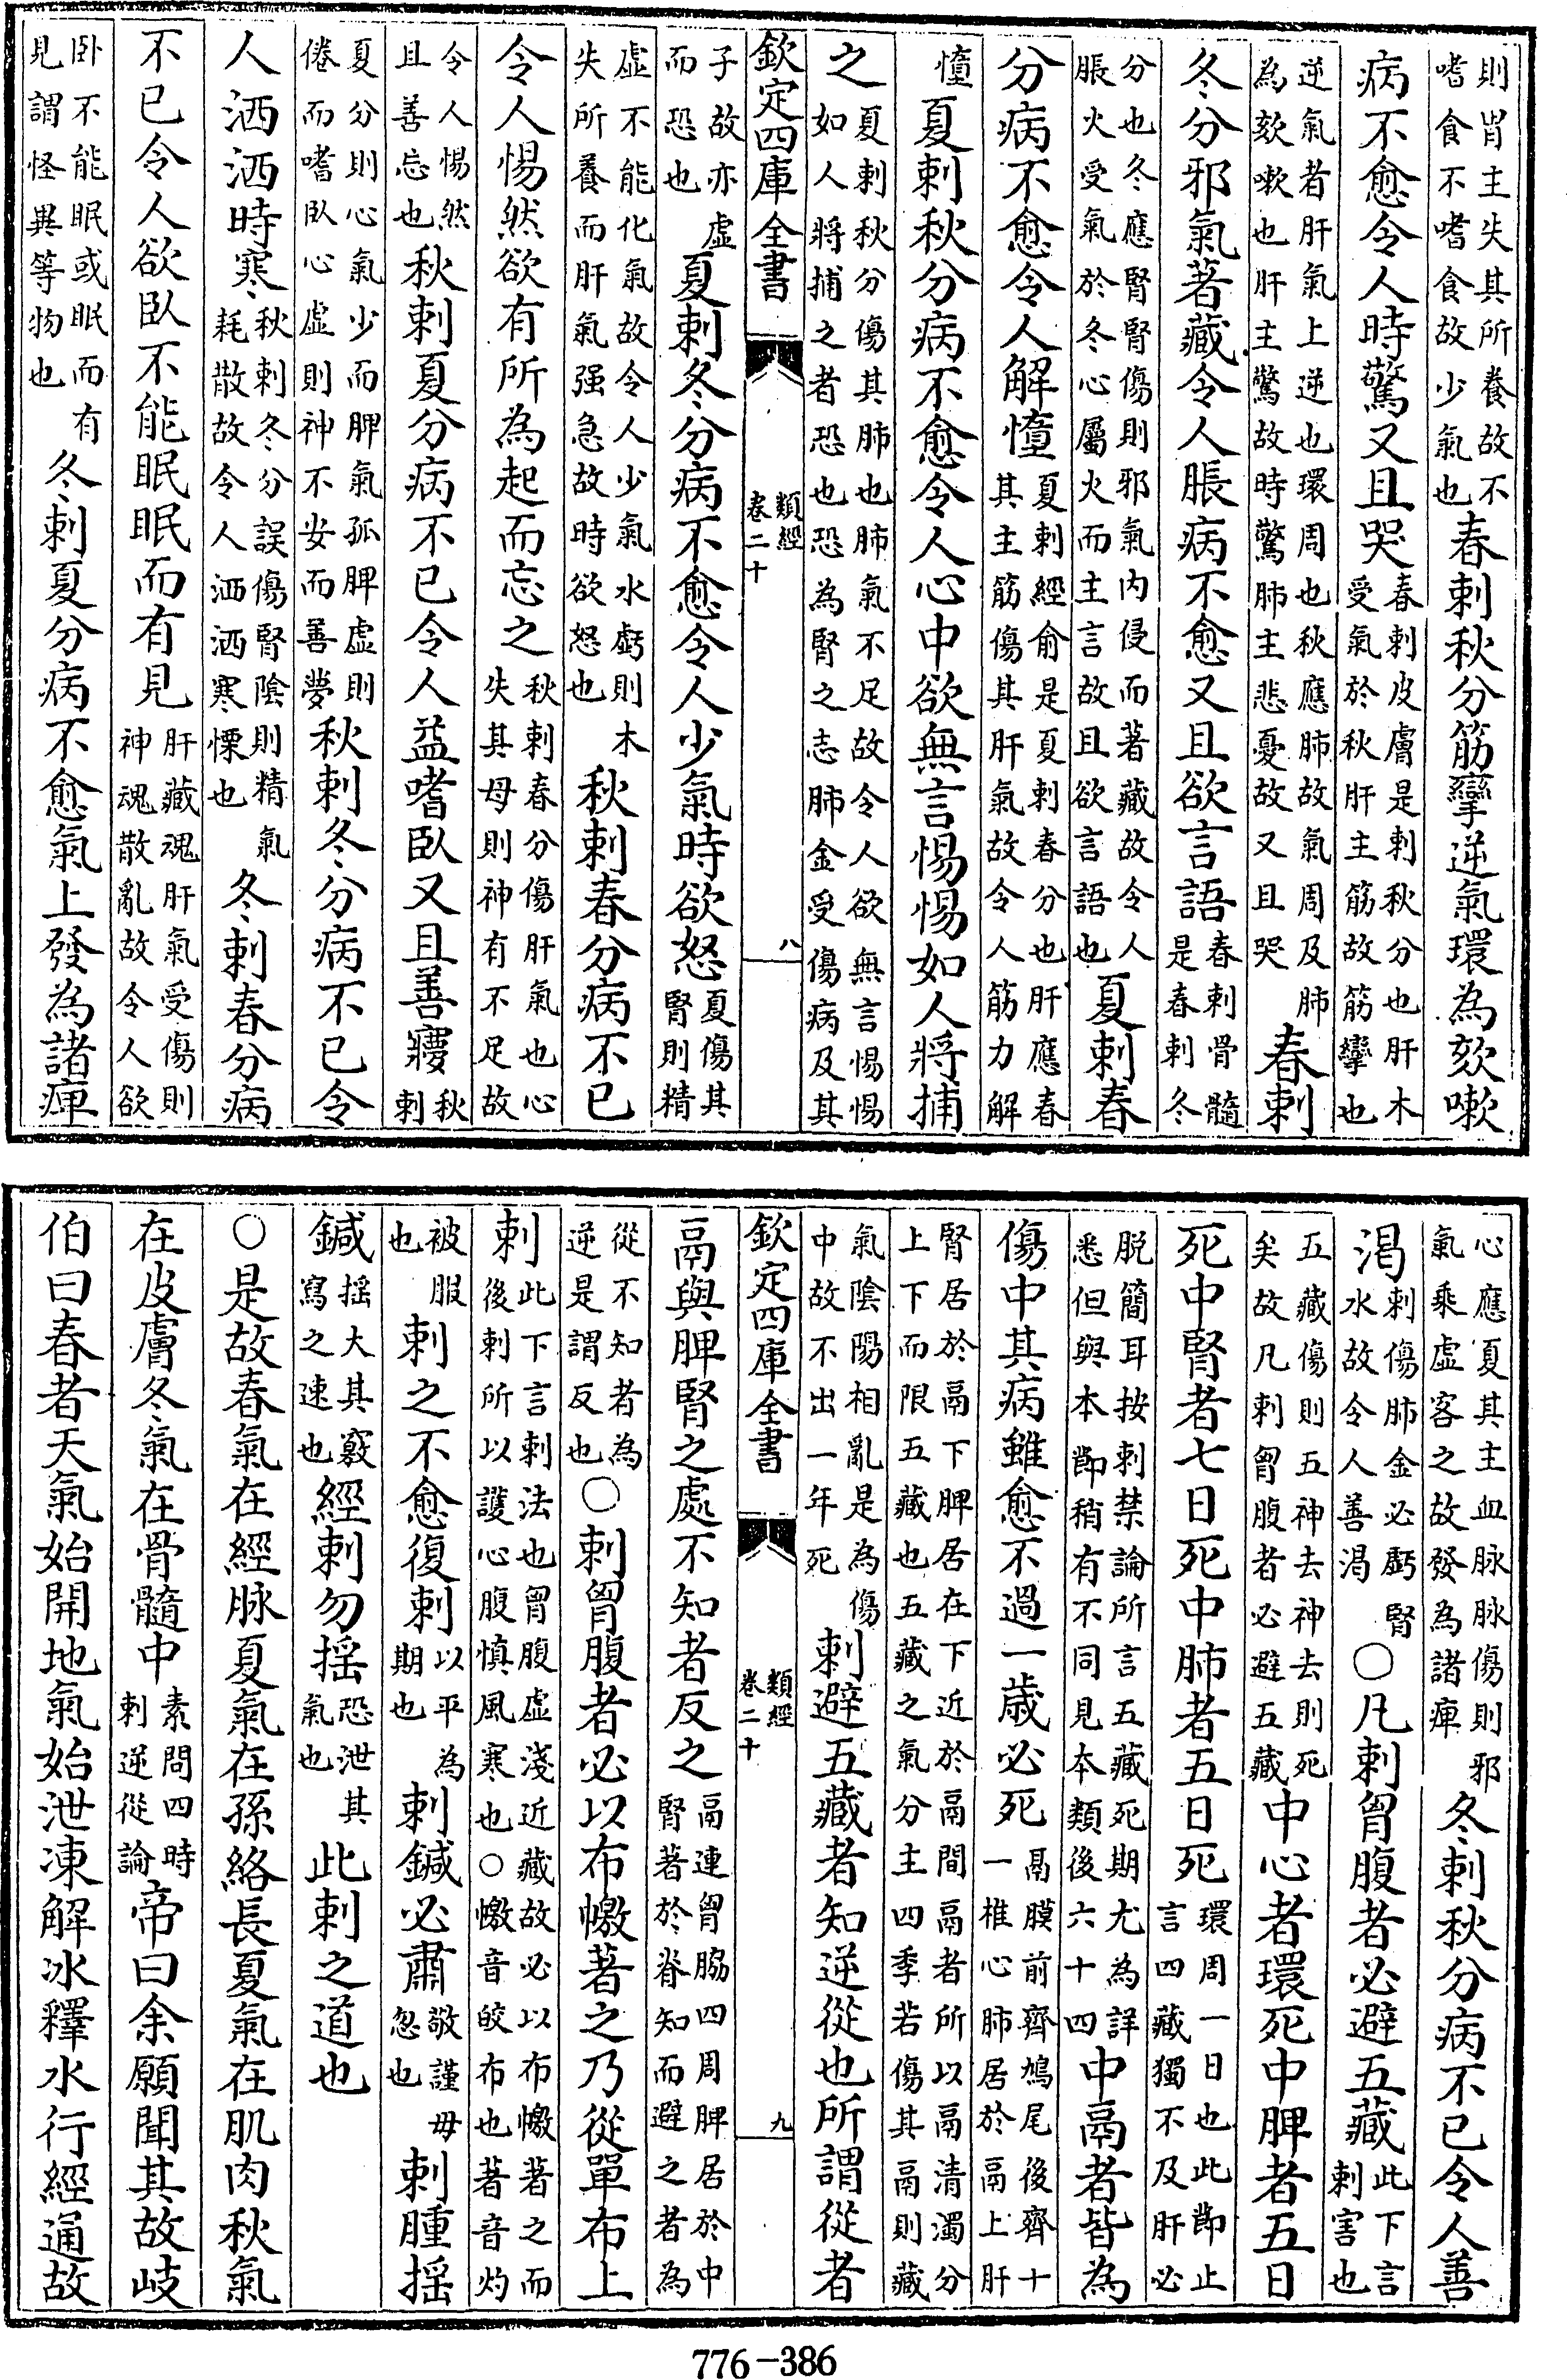 則胃主失其所養故不嗜食不嗜食故少氣也春刺秋分筋攣逆氣環為欬嗽
病不愈令人時驚又且哭春刺皮膚是刺秋分也肝木受氣於秋肝主筋故筋攣也
逆氣者肝氣上逆也環周也秋應肺故氣周及肺為欬嗽也肝主驚故時驚肺主悲憂故又且哭春刺
冬分邪氣著藏令人脹病不愈又且欲言語春刺骨髓是春刺冬
分也冬應腎腎傷則邪氣内侵而著藏故令人脹火受氣於冬心屬火而主言故且欲言語也夏刺春
分病不愈令人解憧夏刺經俞是夏刺春分也肝應春其主筋傷其肝氣故令人筋力解
憧夏刺秋分病不愈令人心中欲無言惕惕如人將捕
之夏刺秋分傷其肺也肺氣不足故令人欲無言惕惕如人將捕之者恐也恐為腎之志肺金受傷病及其
欽定四庫全書 類經 卷二十 八
子故亦虛而恐也夏刺冬分病不愈令人少氣時欲怒夏傷其腎則精
虛不能化氣故令人少氣水虧則木失所養而肝氣强急故時欲怒也秋刺春分病不已
令人惕然欲有所為起而忘之秋刺春分傷肝氣也心失其母則神有不足故
令人惕然且善忘也秋刺夏分病不已令人益嗜臥又且善㝱秋刺
夏分則心氣少而脾氣孤脾虛則倦而嗜臥心虛則神不安而善夢秋刺冬分病不已令
人洒洒時寒秋刺冬分誤傷腎陰則精氣耗散故令人洒洒寒慄也冬刺春分病
不已令人欲臥不能眠眠而有見肝藏魂肝氣受傷則神魂散亂故令人欲
卧不能眠或眠而有見謂怪異等物也冬刺夏分病不愈氣上發為諸痺
心應夏其主血脉脉傷則邪氣乘虛客之故發為諸痺冬刺秋分病不已令人善
渴刺傷肺金必虧腎水故令人善渴○凡刺胷腹者必避五藏此下言刺害也
五藏傷則五神去神去則死矣故凡刺胷腹者必避五藏中心者環死中脾者五日
死中腎者七日死中肺者五日死環周一日也此即止言四藏獨不及肝必
脱簡耳按刺禁論所言五藏死期尤為詳悉但與本卽稍有不同見本類後六十四中鬲者皆為
傷中其病雖愈不過一歲必死鬲膜前齊鳩尾後齊十一椎心肺居於鬲上肝
腎居於鬲下脾居在下近於鬲間鬲者所以鬲清濁分上下而限五藏也五藏之氣分主四季若傷其鬲則藏
氣陰陽相亂是為傷中故不出一年死刺避五藏者知逆從也所謂從者
欽定四庫全書 類經 卷二十 九
鬲與脾腎之處不知者反之鬲連胷脇四周脾居於中腎著於脊知而避之者為
從不知者為逆是謂反也○刺胷腹者必以布憿著之乃從單布上
刺此下言刺法也胷腹虛淺近藏故必以布憿著之而後刺所以護心腹慎風寒也○憿音皎布也著音灼
被服也刺之不愈復刺以平為期也刺鍼必肅敬謹毋忽也刺腫搖
鍼搖大其竅寫之速也經刺勿搖恐泄其氣也此刺之道也
○是故春氣在經脉夏氣在孫絡長夏氣在肌肉秋氣
在皮膚冬氣在骨髓中素問四時刺逆從論帝曰余願聞其故岐
伯曰春者天氣始開地氣始泄凍解冰釋水行經通故
776-386